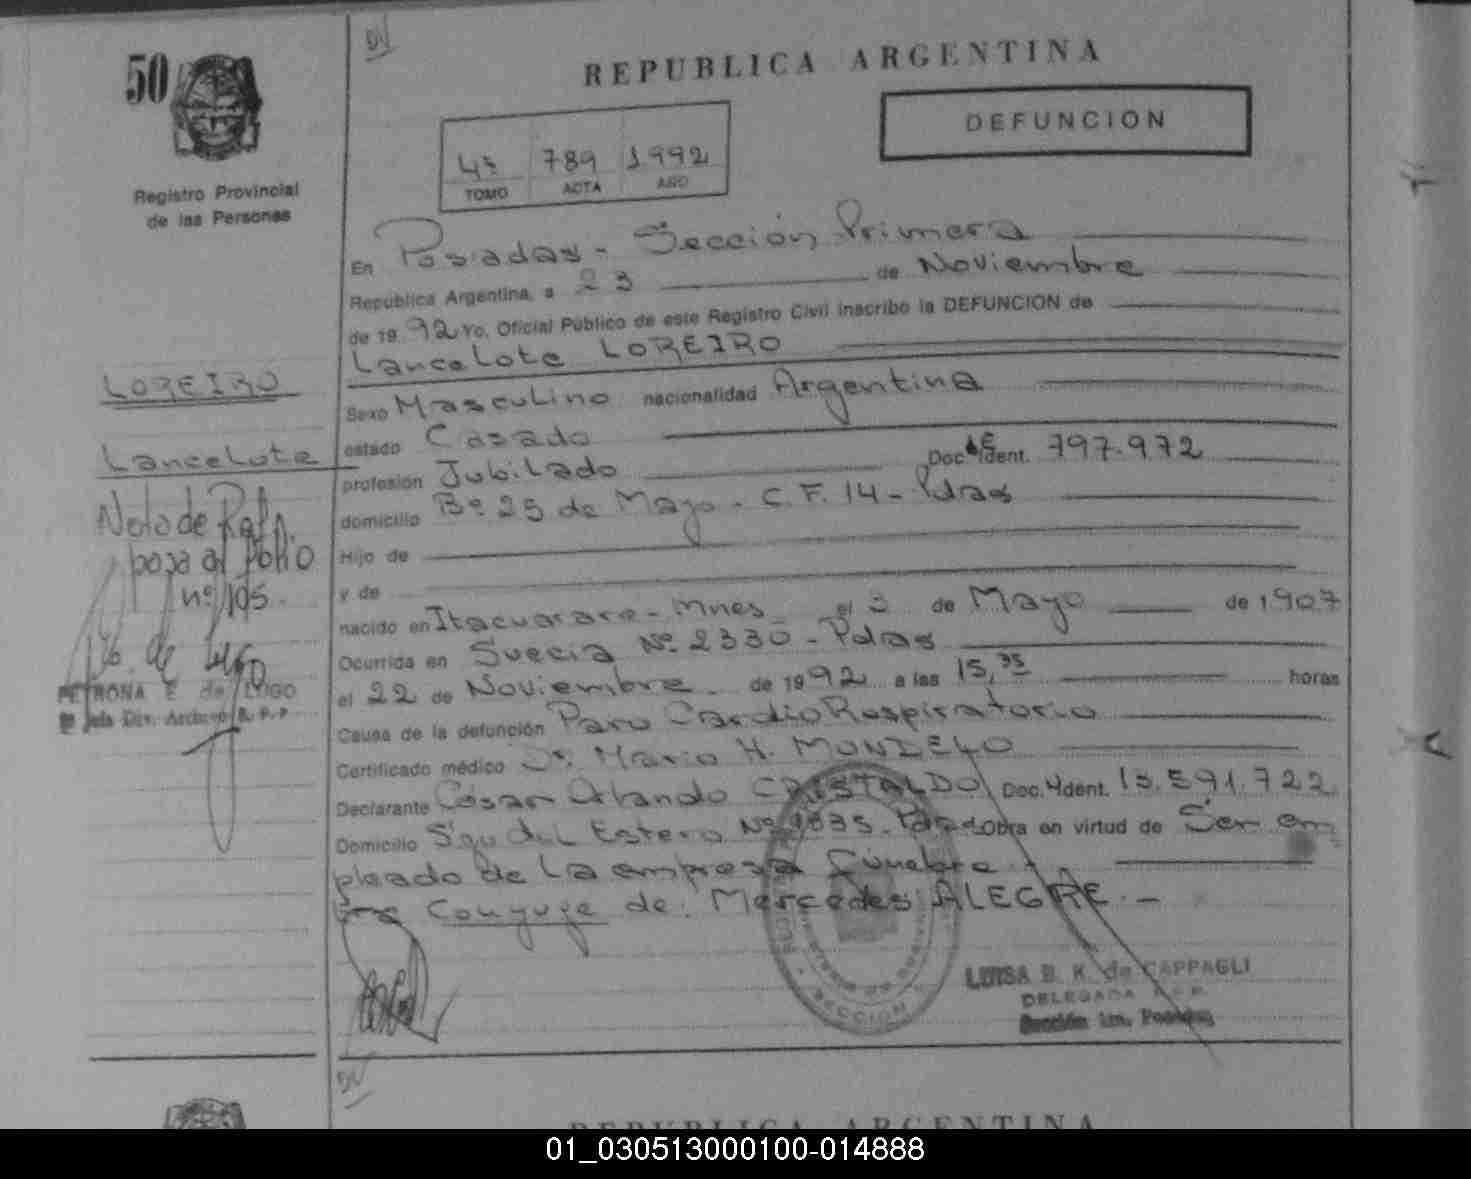 DV
50
REPUBLICA ARGENTINA
DEFUNCION
4º 789 1.992
TOMO ACTA AÑO
Registro Provincial
de las Personas
En Posadas - Sección Primera
República Argentina, a 23 de Noviembre
de 19 92 yo, Oficial Público de este Registro Civil inscribo la DEFUNCION de
Lancelote LOREIRO
LOREIRO
Lancelote
Sexo Masculino nacionalidad Argentina
estado Casado
profesión Jubilado Doc. Ident. 797.972
domicilio Bº 25 de Mayo - C.F. 14 - Pdas
Hijo de
y de
nacido en Itacuarare - Mnes el 3 de Mayo de 1907
Ocurrida en Suecia Nº 2330 - Pdas
el 22 de Noviembre de 19 92 a las 15,35 horas
Causa de la defunción Paro Cardio Respiratorio
Certificado médico Dr. Mario H. MONDELO
Declarante César Orlando CRISTALDO Doc. Ident. 13.591.722
Domicilio Sgo del Estero Nº 1835 - Pdas Obra en virtud de Ser em
pleado de la empresa fúnebre.
Conyuge de: Mercedes ALEGRE. -
Nota de Ref.
pasa al folio
nº 195.
PETRONA E. de LUGO
Jefa Div. Archivo R.P.P
SECCION 1
LUISA B. K. de CAPPAGLI
DELEGADA R.P.P.
Sección 1ra. Posadas
DV
REPUBLICA ARGENTINA
01_030513000100-014888